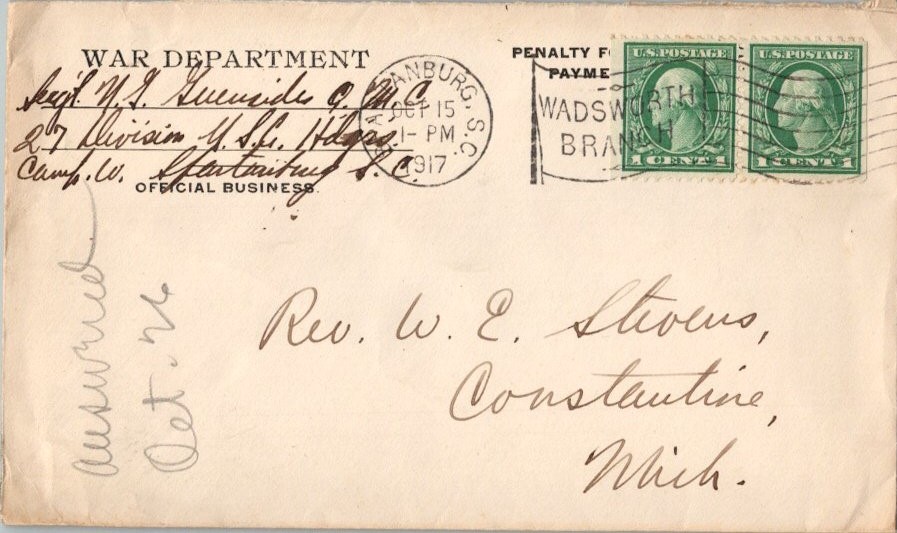 WAR DEPARTMENT
Sergt. N. G. Q. M. C.
27 Division U.S.G. Hdqrs.
Camp. W. Spartanburg S. C.
OFFICIAL BUSINESS.
ANBURG, S.C.
OCT 15
1- PM
1917
PENALTY F
PAYME
WADSWORTH
BRANCH
U.S. POSTAGE
1 CENT 1
U.S. POSTAGE
1 CENT 1
Rev. W. E. Stevens,
Constantine,
Mich.
answered
Oct. 26